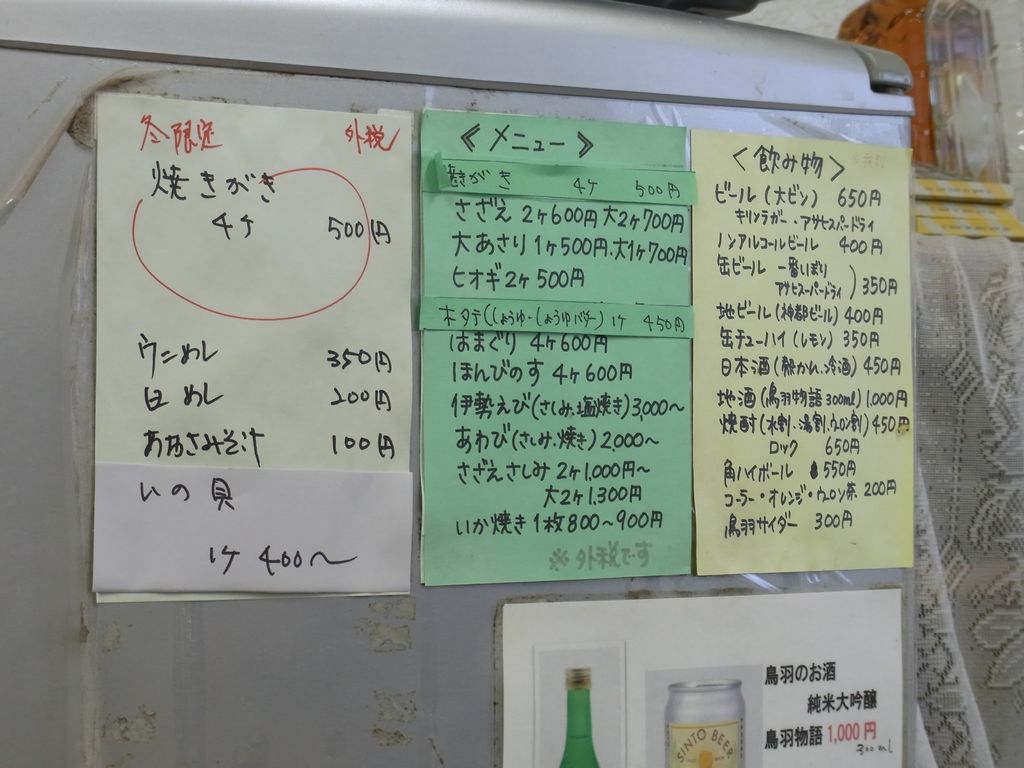 冬限定 外税
焼きがき
4ケ 500円
ウニめし 350円
白めし 200円
あおさみそ汁 100円
いの貝
1ケ 400〜
≪メニュー≫
焼きがき 4ケ 500円
さざえ 2ケ600円 大2ケ700円
大あさり 1ケ500円.大1ケ700円
ヒオギ2ケ 500円
ホタテ(しょうゆ・しょうゆバター) 1ケ 450円
はまぐり 4ケ600円
ほんびのす 4ケ600円
伊勢えび(さしみ.塩焼き)3,000〜
あわび(さしみ.焼き)2,000〜
さざえさしみ 2ケ1,000円〜
大2ケ1,300円
いか焼き 1枚800〜900円
※外税です
<飲み物>
ビール(大ビン) 650円
キリンラガー・アサヒスーパードライ
ノンアルコールビール 400円
缶ビール 一番しぼり
アサヒスーパードライ )350円
地ビール(神都ビール)400円
缶チューハイ(レモン)350円
日本酒(熱かん.冷酒)450円
地酒(鳥羽物語300ml)1,000円
焼酎(水割.湯割.ウロン割)450円
ロック 650円
角ハイボール 550円
コーラー・オレンジ・ウロン茶 200円
鳥羽サイダー 300円
鳥羽のお酒
純米大吟醸
鳥羽物語 1,000円
300ml
SINTO BEER